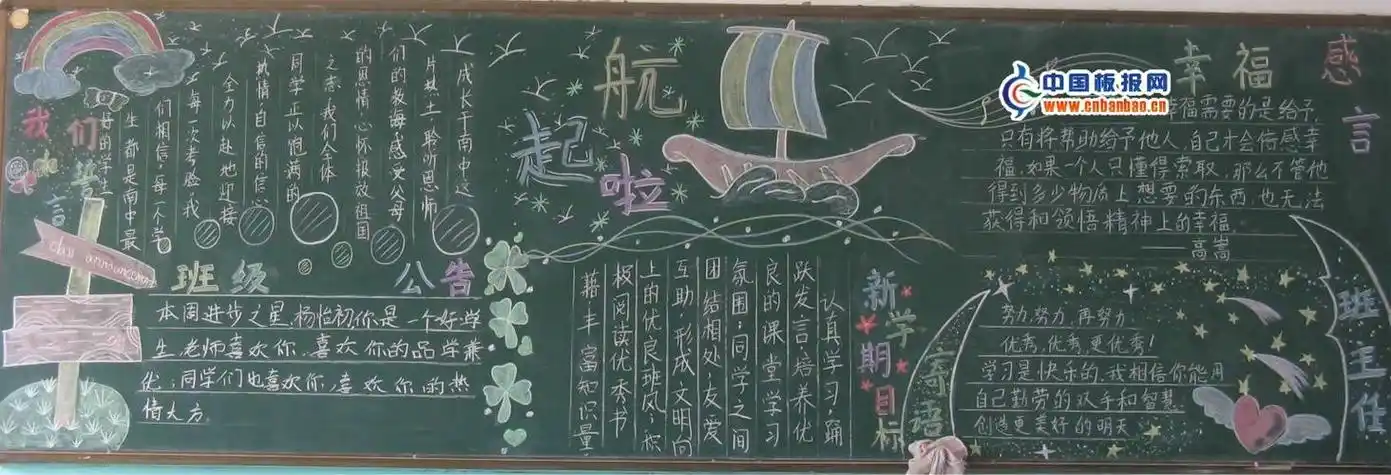 我们誓言
成长于南中这
片热土聆听恩师
们的教诲感受父母
的恩情心怀报效祖国
之志,我们全体
同学正以饱满的
热情,自信的信心
全力以赴地迎接
每一次考验我
们相信,每一个学
生都是南中最
好的学生
class announcement
班级公告
本周进步之星,杨怡初你是一个好学
生,老师喜欢你,喜欢你的品学兼
优;同学们也喜欢你,喜欢你的热
情大方。
起航啦
新学期目标
认真学习,踊
跃发言,培养优
良的课堂学习
氛围;同学之间
团结相处友爱
互助,形成文明向
上的优良班风;积
极阅读优秀书
籍丰富知识量
幸福感言
中国板报网
www.cnbanbao.cn
幸福需要的是给予,
只有将帮助给予他人,自己才会倍感幸
福,如果一个人只懂得索取,那么不管他
得到多少物质上想要的东西,也无法
获得和领悟精神上的幸福。
——高嵩
班主任寄语
努力,努力,再努力
优秀,优秀,更优秀!
学习是快乐的,我相信你能用
自己勤劳的双手和智慧
创造更美好的明天